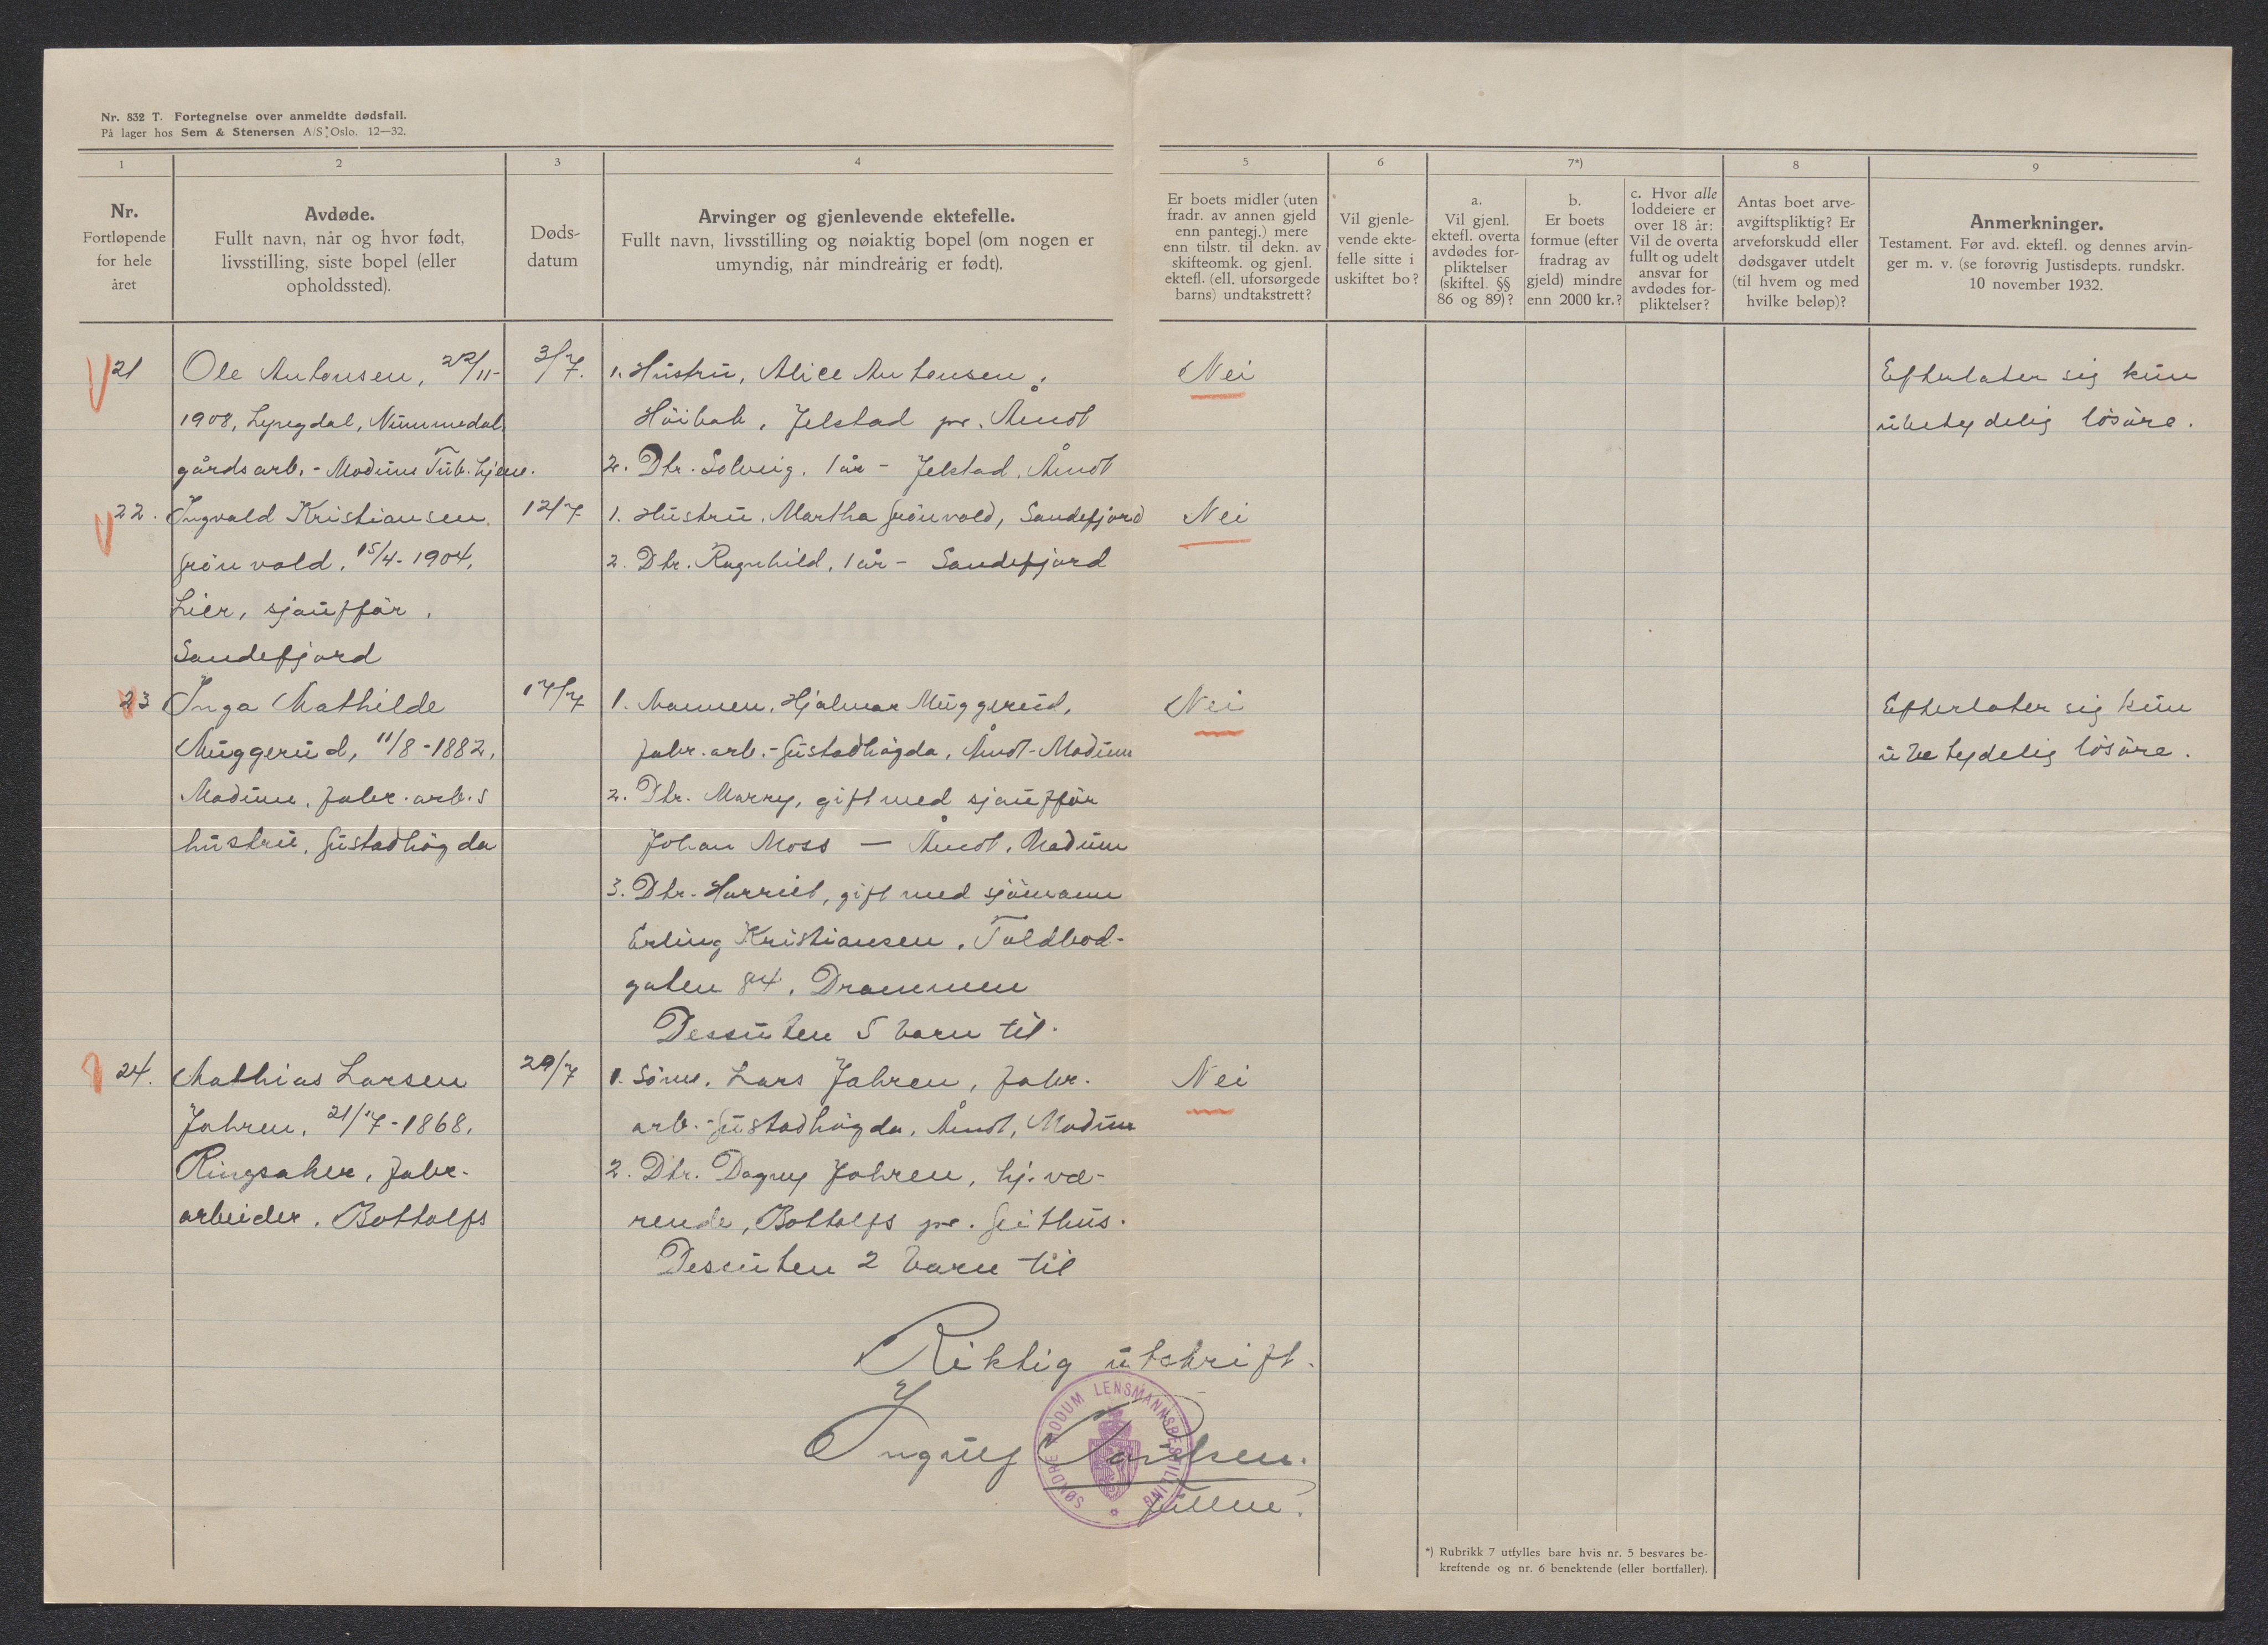 Nr. 832 T. Fortegnelse over anmeldte dødsfall.
På lager hos Sem & Stenersen A/S, Oslo. 12—32.
1
2
3
4
5
6
7*)
8
9
Nr.
Fortløpende
for hele
året
Avdøde.
Fullt navn, når og hvor født,
livsstilling, siste bopel (eller
opholdssted).
Døds-
datum
Arvinger og gjenlevende ektefelle.
Fullt navn, livsstilling og nøiaktig bopel (om nogen er
umyndig, når mindreårig er født).
Er boets midler (uten
fradr. av annen gjeld
enn pantegj.) mere
enn tilstr. til dekn. av
skifteomk. og gjenl.
ektefl. (ell. uforsørgede
barns) undtakstrett?
Vil gjenle-
vende ekte-
felle sitte i
uskiftet bo?
a.
Vil gjenl.
ektefl. overta
avdødes for-
pliktelser
(skiftel. §§
86 og 89)?
b.
Er boets
formue (efter
fradrag av
gjeld) mindre
enn 2000 kr.?
c. Hvor alle
loddeiere er
over 18 år:
Vil de overta
fullt og udelt
ansvar for
avdødes for-
pliktelser?
Antas boet arve-
avgiftspliktig? Er
arveforskudd eller
dødsgaver utdelt
(til hvem og med
hvilke beløp)?
Anmerkninger.
Testament. Før avd. ektefl. og dennes arvin-
ger m. v. (se forøvrig Justisdepts. rundskr.
10 november 1932.
21
Ole Antonsen, 22/11-
1908, Lyngdal, Nummedal,
gårdsarb. - Modum Tub. hjem.
3/7.
1. Hustru, Alice Antonsen,
Höibak, Jelstad pr. Åmot
2. Dtr. Solveig, 1 år - Jelstad, Åmot
Nei
Efterlater sig kun
ubetydelig lösöre.
22.
Ingvald Kristiansen
Grönvold, 15/4-1904,
Lier, sjaufför,
Sandefjord
12/7
1. Hustru, Martha Grönvold, Sandefjord
2. Dtr. Ragnhild, 1 år - Sandefjord
Nei
23
Inga Mathilde
Muggerud, 11/8-1882,
Modum, fabr. arb.s
hustru, Gustadhögda
17/7
1. Mannen, Hjalmar Muggerud,
fabr. arb. - Gustadhögda, Åmot-Modum
2. Dtr. Marry, gift med sjaufför
Johan Moss — Åmot, Modum
3. Dtr. Harriet, gift med sjömann
Erling Kristiansen, Toldbod-
gaten 84, Drammen
Dessuten 5 barn til.
Nei
Efterlater sig kun
ubetydelig lösöre.
24.
Mathias Larsen
Jahren, 21/7-1868,
Ringsaker, fabr.
arbeider, Bottolfs
29/7
1. Sönn, Lars Jahren, fabr.
arb. - Gustadhögda, Åmot, Modum
2. Dtr. Dagny Jahren, hj. væ-
rende, Bottolfs pr. Geithus.
Dessuten 2 barn til
Nei
Riktig utskrift.
SØNDRE MODUM LENSMANNSBESTILLING
fullm.
*) Rubrikk 7 utfylles bare hvis nr. 5 besvares be-
kreftende og nr. 6 benektende (eller bortfaller).